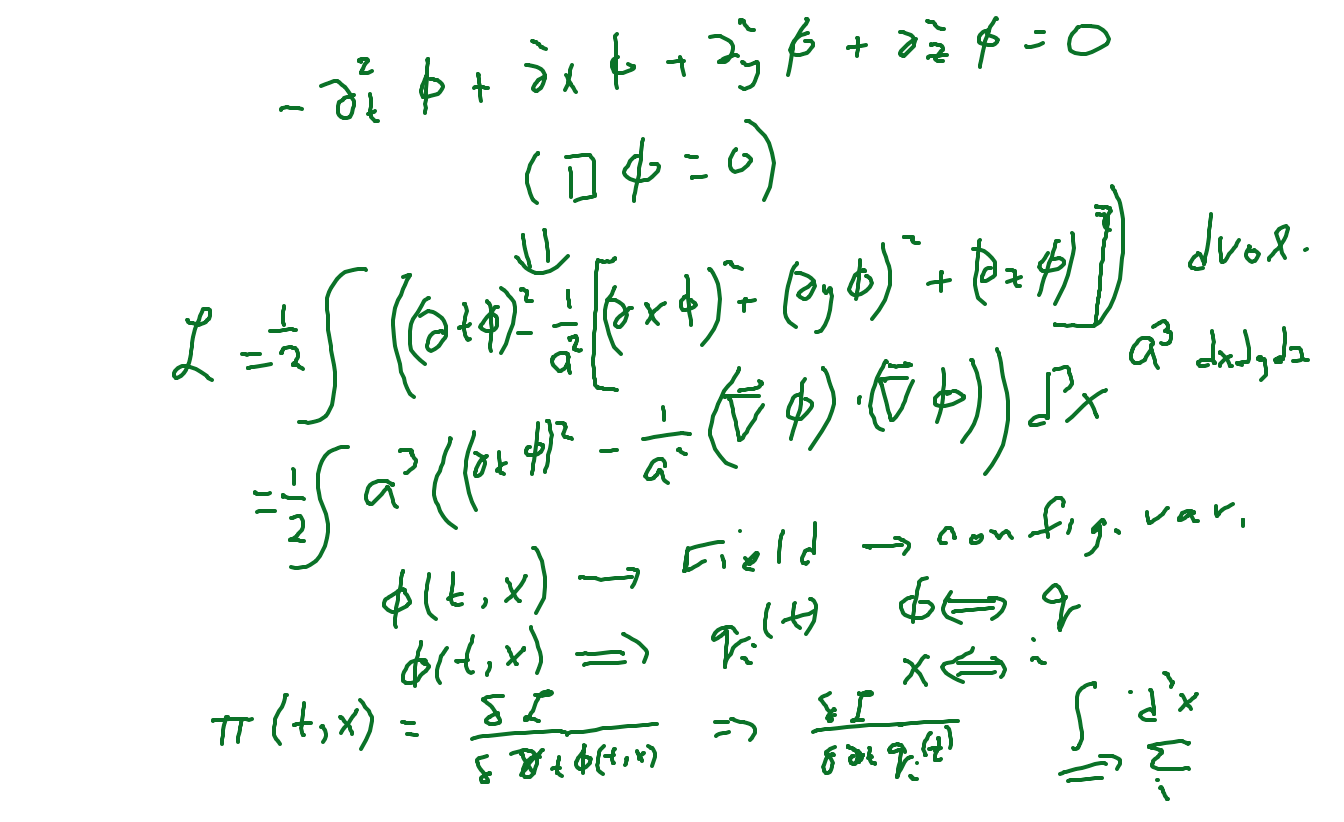 - ∂t² φ + ∂x² φ + ∂y² φ + ∂z² φ = 0
(□ φ = 0)
⇓
L = 1/2 ∫ ((∂tφ)² - 1/a² [(∂xφ)² + (∂yφ)² + (∂zφ)²]) dvol.
a³ dxdydz
= 1/2 ∫ a³ ((∂tφ)² - 1/a² (∇⃗ φ) · (∇⃗ φ)) d³x
φ(t, x) → Field → config. var.
φ(t, x) ⇒ qᵢ(t) φ ⇔ q
x ⇔ i
π(t, x) = δL / δ∂tφ(t,x) ⇒ δL / δ∂t qᵢ(t) ∫ d³x ⇒ Σᵢ